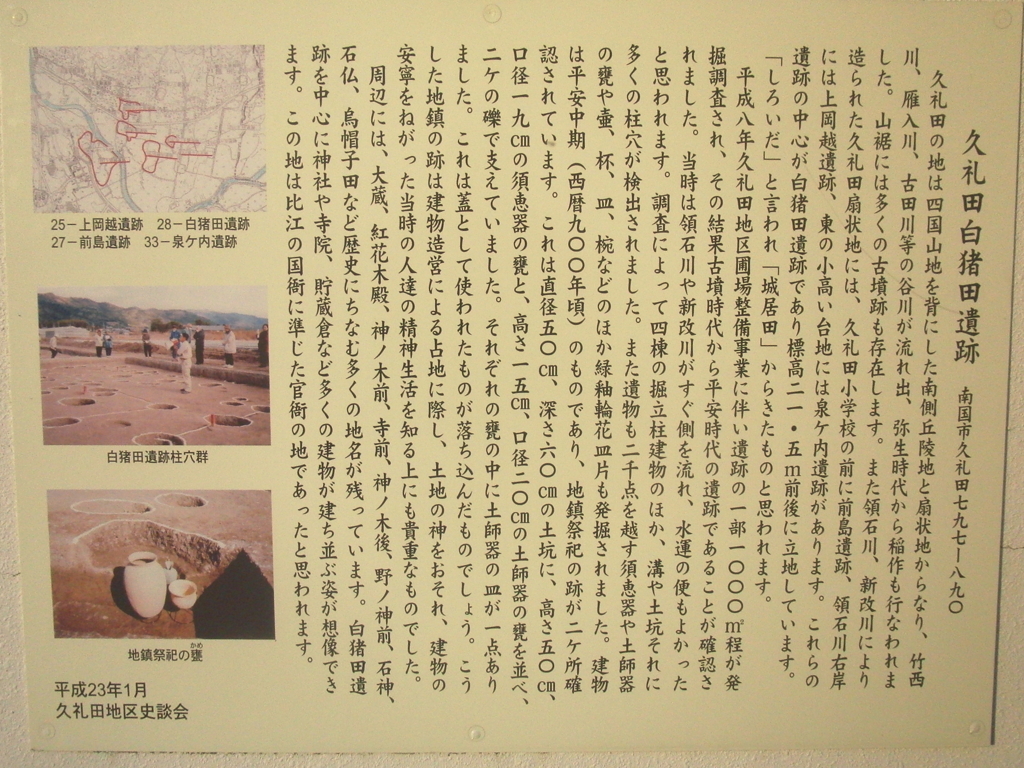 久礼田白猪田遺跡　南国市久礼田七九七ー八九〇
久礼田の地は四国山地を背にした南側丘陵地と扇状地からなり、竹西
川、雁入川、古田川等の谷川が流れ出、弥生時代から稲作も行なわれま
した。山裾には多くの古墳跡も存在します。また領石川、新改川により
造られた久礼田扇状地には、久礼田小学校の前に前島遺跡、領石川右岸
には上岡越遺跡、東の小高い台地には泉ケ内遺跡があります。これらの
遺跡の中心が白猪田遺跡であり標高二一・五m前後に立地しています。
「しろいだ」と言われ「城居田」からきたものと思われます。
平成八年久礼田地区圃場整備事業に伴い遺跡の一部一〇〇〇㎡程が発
掘調査され、その結果古墳時代から平安時代の遺跡であることが確認さ
れました。当時は領石川や新改川がすぐ側を流れ、水運の便もよかった
と思われます。調査によって四棟の掘立柱建物のほか、溝や土坑それに
多くの柱穴が検出されました。また遺物も二千点を越す須恵器や土師器
の甕や壷、杯、皿、椀などのほか緑釉輪花皿片も発掘されました。建物
は平安中期（西暦九〇〇年頃）のものであり、地鎮祭祀の跡が二ケ所確
認されています。これは直径五〇㎝、深さ六〇㎝の土坑に、高さ五〇㎝、
口径一九㎝の須恵器の甕と、高さ一五㎝、口径二〇㎝の土師器の甕を並べ、
二ケの礫で支えていました。それぞれの甕の中に土師器の皿が一点あり
ました。これは蓋として使われたものが落ち込んだものでしょう。こう
した地鎮の跡は建物造営による占地に際し、土地の神をおそれ、建物の
安寧をねがった当時の人達の精神生活を知る上にも貴重なものでした。
周辺には、大蔵、紅花木殿、神ノ木前、寺前、神ノ木後、野ノ神前、石神、
石仏、烏帽子田など歴史にちなむ多くの地名が残っています。白猪田遺
跡を中心に神社や寺院、貯蔵倉など多くの建物が建ち並ぶ姿が想像でき
ます。この地は比江の国衙に準じた官衙の地であったと思われます。
25－上岡越遺跡　28－白猪田遺跡
27－前島遺跡　33－泉ケ内遺跡
白猪田遺跡柱穴群
地鎮祭祀の甕
かめ
平成23年1月
久礼田地区史談会